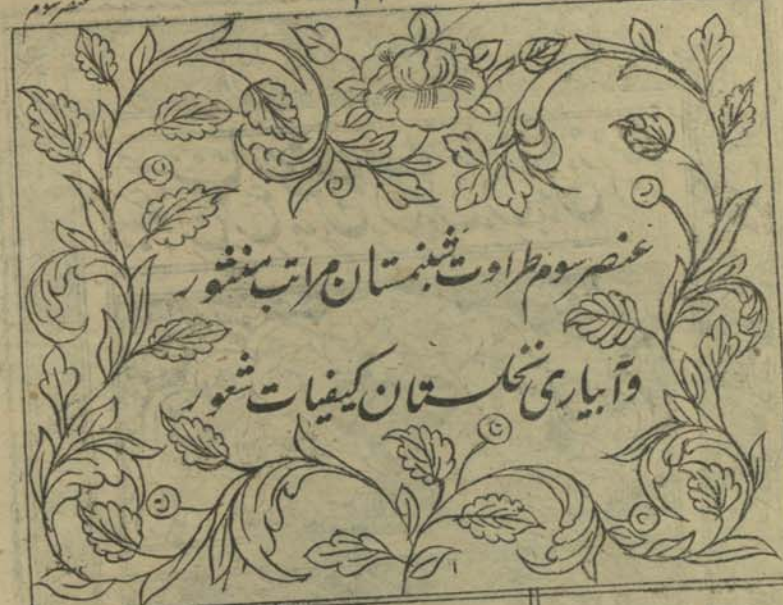 عنصر سوم
عنصر سوم طراوت شبنمستان مراتب منثور
وآبیاری نخلستان کیفیات شعور